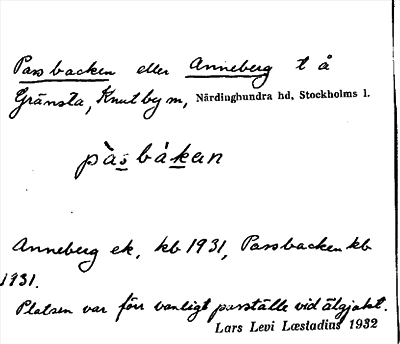 Passbacken eller Anneberg t å
Gränsta, Knutby m, Närdinghundra hd, Stockholms l.
pàsbákan
Anneberg ek. kb 1931, Passbacken kb
1931.
Platsen var förr vanligt pasställe vid älgjakt.
Lars Levi Læstadius 1932